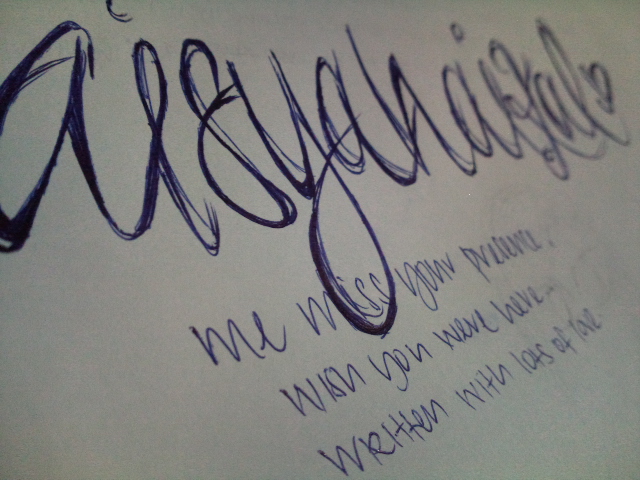 aisyahaizal
me miss your presence.
wish you were here...
written with lots of love.